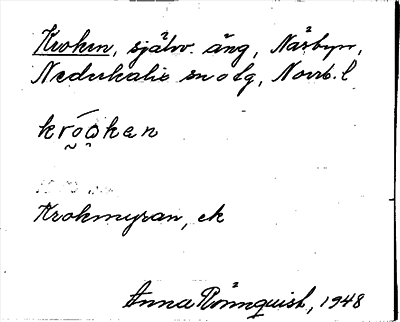 Kroken, självv. äng, Näsbyn,
Nederkalix sn o tg, Norrb. l
krōo̭kən
Krokmyran, ek
Anna Rönnquist, 1948